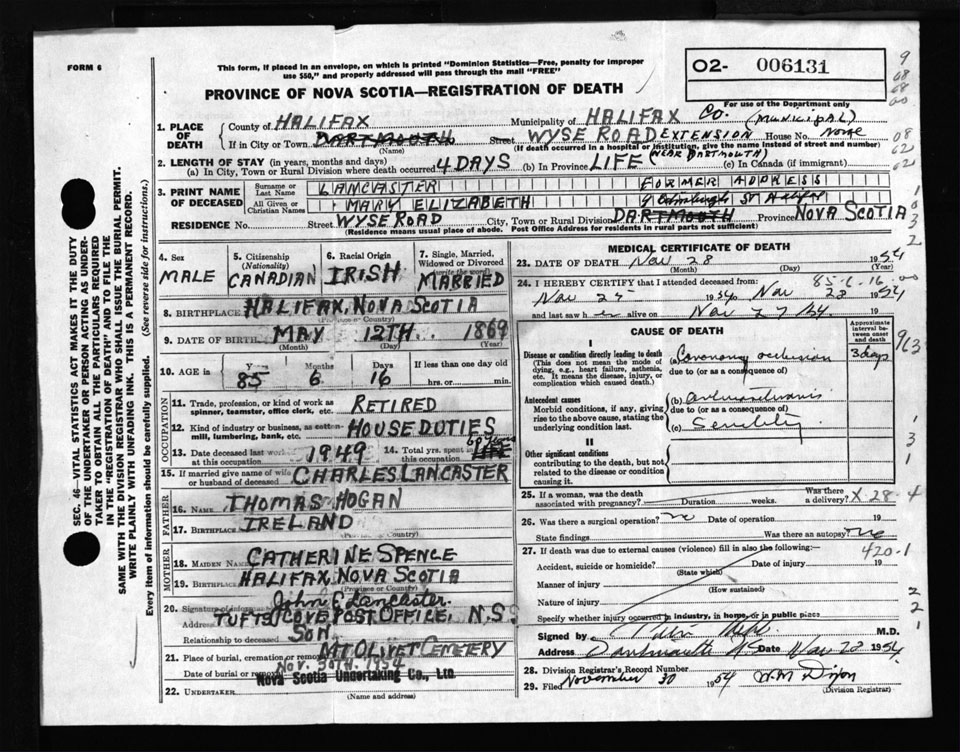 FORM 6
This form, if placed in an envelope, on which is printed "Dominion Statistics—Free, penalty for improper
use $50," and properly addressed will pass through the mail "FREE"
O2- 006131
For use of the Department only
PROVINCE OF NOVA SCOTIA—REGISTRATION OF DEATH
1. PLACE OF DEATH
County of HALIFAX Municipality of HALIFAX CO. (MUNICIPAL)
If in City or Town DARTMOUTH (Name) Street WYSE ROAD EXTENSION House No. None
(If death occurred in a hospital or institution, give the name instead of street and number)
(NEAR DARTMOUTH)
2. LENGTH OF STAY (in years, months and days)
(a) In City, Town or Rural Division where death occurred 4 DAYS (b) In Province LIFE (c) In Canada (if immigrant)
3. PRINT NAME OF DECEASED
Surname or Last Name LANCASTER FORMER ADDRESS
All Given or Christian Names MARY ELIZABETH 9 St Halifax
RESIDENCE No. Street WYSE ROAD City, Town or Rural Division DARTMOUTH Province NOVA SCOTIA
(Residence means usual place of abode. Post Office Address for residents in rural parts not sufficient)
4. Sex MALE
5. Citizenship (Nationality) CANADIAN
6. Racial Origin IRISH
7. Single, Married, Widowed or Divorced (write the word) MARRIED
8. BIRTHPLACE HALIFAX, NOVA SCOTIA
(Province or Country)
9. DATE OF BIRTH MAY 12TH 1869
(Month) (Day) (Year)
10. AGE in Years 85 Months 6 Days 16 If less than one day old
hrs. or min.
OCCUPATION
11. Trade, profession, or kind of work as
spinner, teamster, office clerk, etc. RETIRED
12. Kind of industry or business, as cotton-
mill, lumbering, bank, etc. HOUSE DUTIES
13. Date deceased last worked
at this occupation 1949
14. Total yrs. spent in
this occupation LIFE
15. If married give name of wife
or husband of deceased CHARLES LANCASTER
FATHER
16. NAME THOMAS HOGAN
17. BIRTHPLACE IRELAND
MOTHER
18. MAIDEN NAME CATHERINE SPENCE
19. BIRTHPLACE HALIFAX, NOVA SCOTIA
(Province or Country)
20. Signature of informant John C Lancaster.
Address TUFTS COVE POST OFFICE, N.S.
Relationship to deceased SON
21. Place of burial, cremation or removal MT OLIVET CEMETERY
Date of burial or removal Nov. 30TH. 1954
22. UNDERTAKER Nova Scotia Undertaking Co., Ltd.
(Name and address)
MEDICAL CERTIFICATE OF DEATH
23. DATE OF DEATH Nov 28 1954
(Month) (Day) (Year)
85-6-16
24. I HEREBY CERTIFY that I attended deceased from:
Nov 25 1954 to Nov 28 1954
and last saw her alive on Nov 27
CAUSE OF DEATH
Approximate interval between onset and death
I
Disease or condition directly leading to death
(This does not mean the mode of dying, e.g., heart failure, asthenia, etc. It means the disease, injury, or complication which caused death.)
(a) Coronary occlusion 3 days
due to (or as a consequence of)
Antecedent causes
Morbid conditions, if any, giving rise to the above cause, stating the underlying condition last.
(b) Arteriosclerosis
due to (or as a consequence of)
(c) Senility
II
Other significant conditions
contributing to the death, but not related to the disease or condition causing it.
25. If a woman, was the death
associated with pregnancy? Duration weeks. Was there a delivery? X-28-4
26. Was there a surgical operation? no Date of operation 19
State findings Was there an autopsy? no
27. If death was due to external causes (violence) fill in also the following:— 420-1
Accident, suicide or homicide? Date of injury 19
(State which)
Manner of injury
(How sustained)
Nature of injury
Specify whether injury occurred in industry, in home, or in public place
Signed by M.D.
Address Dartmouth NS Date Nov 1954
28. Division Registrar's Record Number
29. Filed November 30 1954 W.M. Dixon
(Division Registrar)
SEC. 46—VITAL STATISTICS ACT MAKES IT THE DUTY
OF THE UNDERTAKER OR PERSON ACTING AS UNDER-
TAKER TO OBTAIN ALL THE PARTICULARS REQUIRED
IN THE "REGISTRATION OF DEATH" AND TO FILE THE
SAME WITH THE DIVISION REGISTRAR WHO SHALL ISSUE THE BURIAL PERMIT.
WRITE PLAINLY WITH UNFADING INK. THIS IS A PERMANENT RECORD.
Every item of information should be carefully supplied. (See reverse side for instructions.)